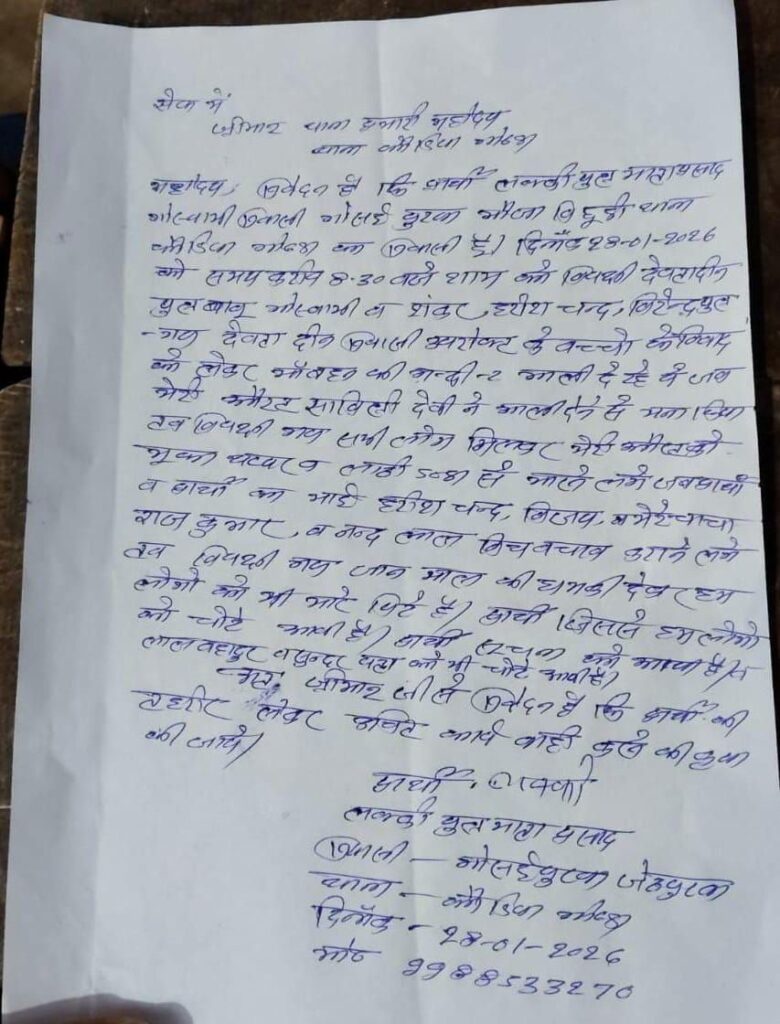 सेवा में
श्रीमान थाना प्रभारी महोदय
थाना कौडिया गोण्डा
महोदय, निवेदन है कि प्रार्थी लक्की पुत्र माता प्रसाद
गोस्वामी निवासी गोसाई पुरवा मौजा थाना
कौडिया गोण्डा का निवासी है। दिनाँक 28-01-2026
को समय करीब 8.30 बजे शाम को विपक्षी देवतादीन
पुत्र बाबू गोस्वामी व शंकर, हरीश चन्द, विरेन्द्र पुत्र
गण देवता दीन निवासी उपरोक्त के बच्चो के विवाद
को लेकर माँ बहन की गन्दी-2 गाली दे रहे थे जब
मेरी औरत सावित्री देवी ने गाली देने से मना किया
तब विपक्षी गण सभी लोग मिलकर मेरी औरत को
मूका थप्पर व लाठी डण्डा से मारने लगे जब प्रार्थी
व प्रार्थी का भाई हरीश चन्द, विजय, व मेरे चाचा
राज कुमार, व नन्द लाल बिच बचाव कराने लगे
तब विपक्षी गण जान माल की धमकी देकर हम
लोगो को भी मारे पिटे है। प्रार्थी जिससे हम लोगो
को चोटे आयी है। प्रार्थी सूचना को आया है।
लाल बहादुर व सुन्दर को भी चोटे आयी है।
अतः श्रीमान जी से निवेदन है कि प्रार्थी की
तहरीर लेकर उचित कार्य वाही करने की कृपा
की जाये।
प्रार्थी. लक्की
लक्की पुत्र माता प्रसाद
निवासी - गोसाईपुरवा जेठपुरवा
थाना - कौडिया गोण्डा
दिनाँक - 28-01-2026
मो० 9988533270